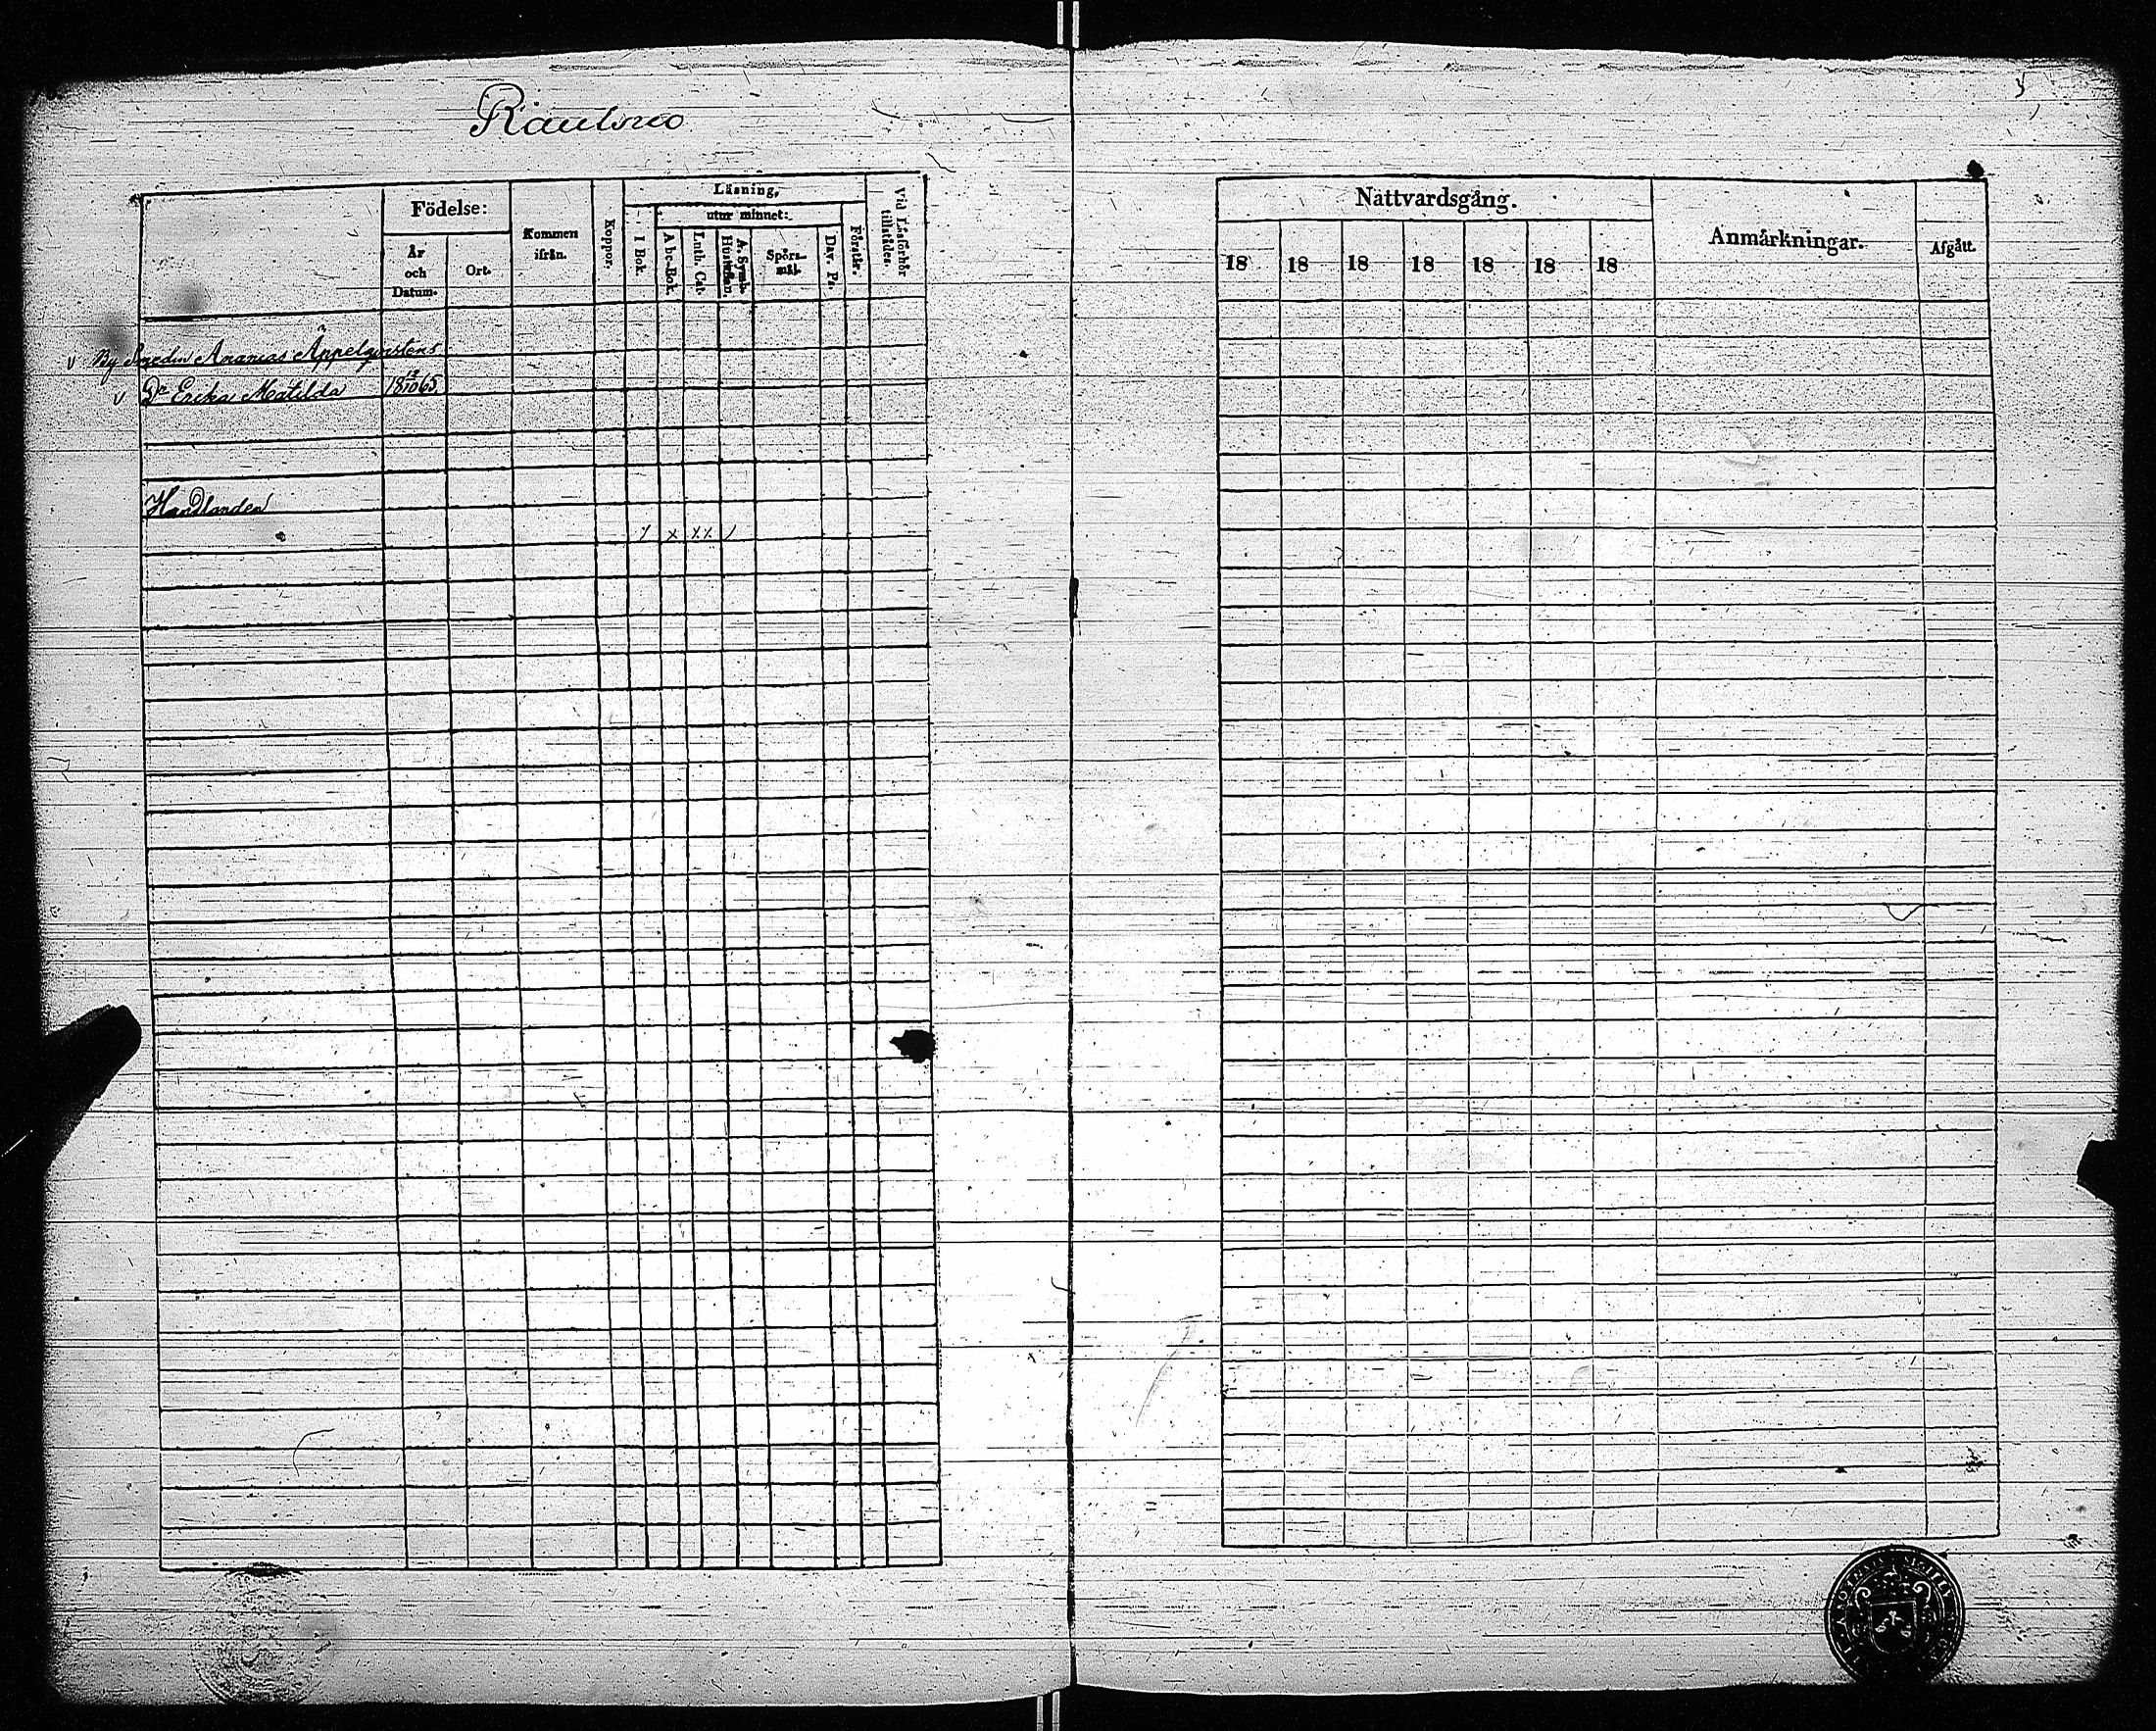 Rautsuo
Födelse:
År och Datum.
Ort.
Kommen ifrån.
Koppor.
Läsning,
I Bok.
utur minnet:
Abc-Bok.
Luth. Cat.
A. Symb. Hustaflan.
Spörs-mål.
Dav. Ps.
Förstår.
Vid Läsförhör tillstädes.
v By Smeden Ananias Äppelqvistens
v Dr Erika Matilda 18 12/10 65
Handlanden
Nattvardsgång.
18 18 18 18 18 18 18
Anmärkningar.
Afgått.